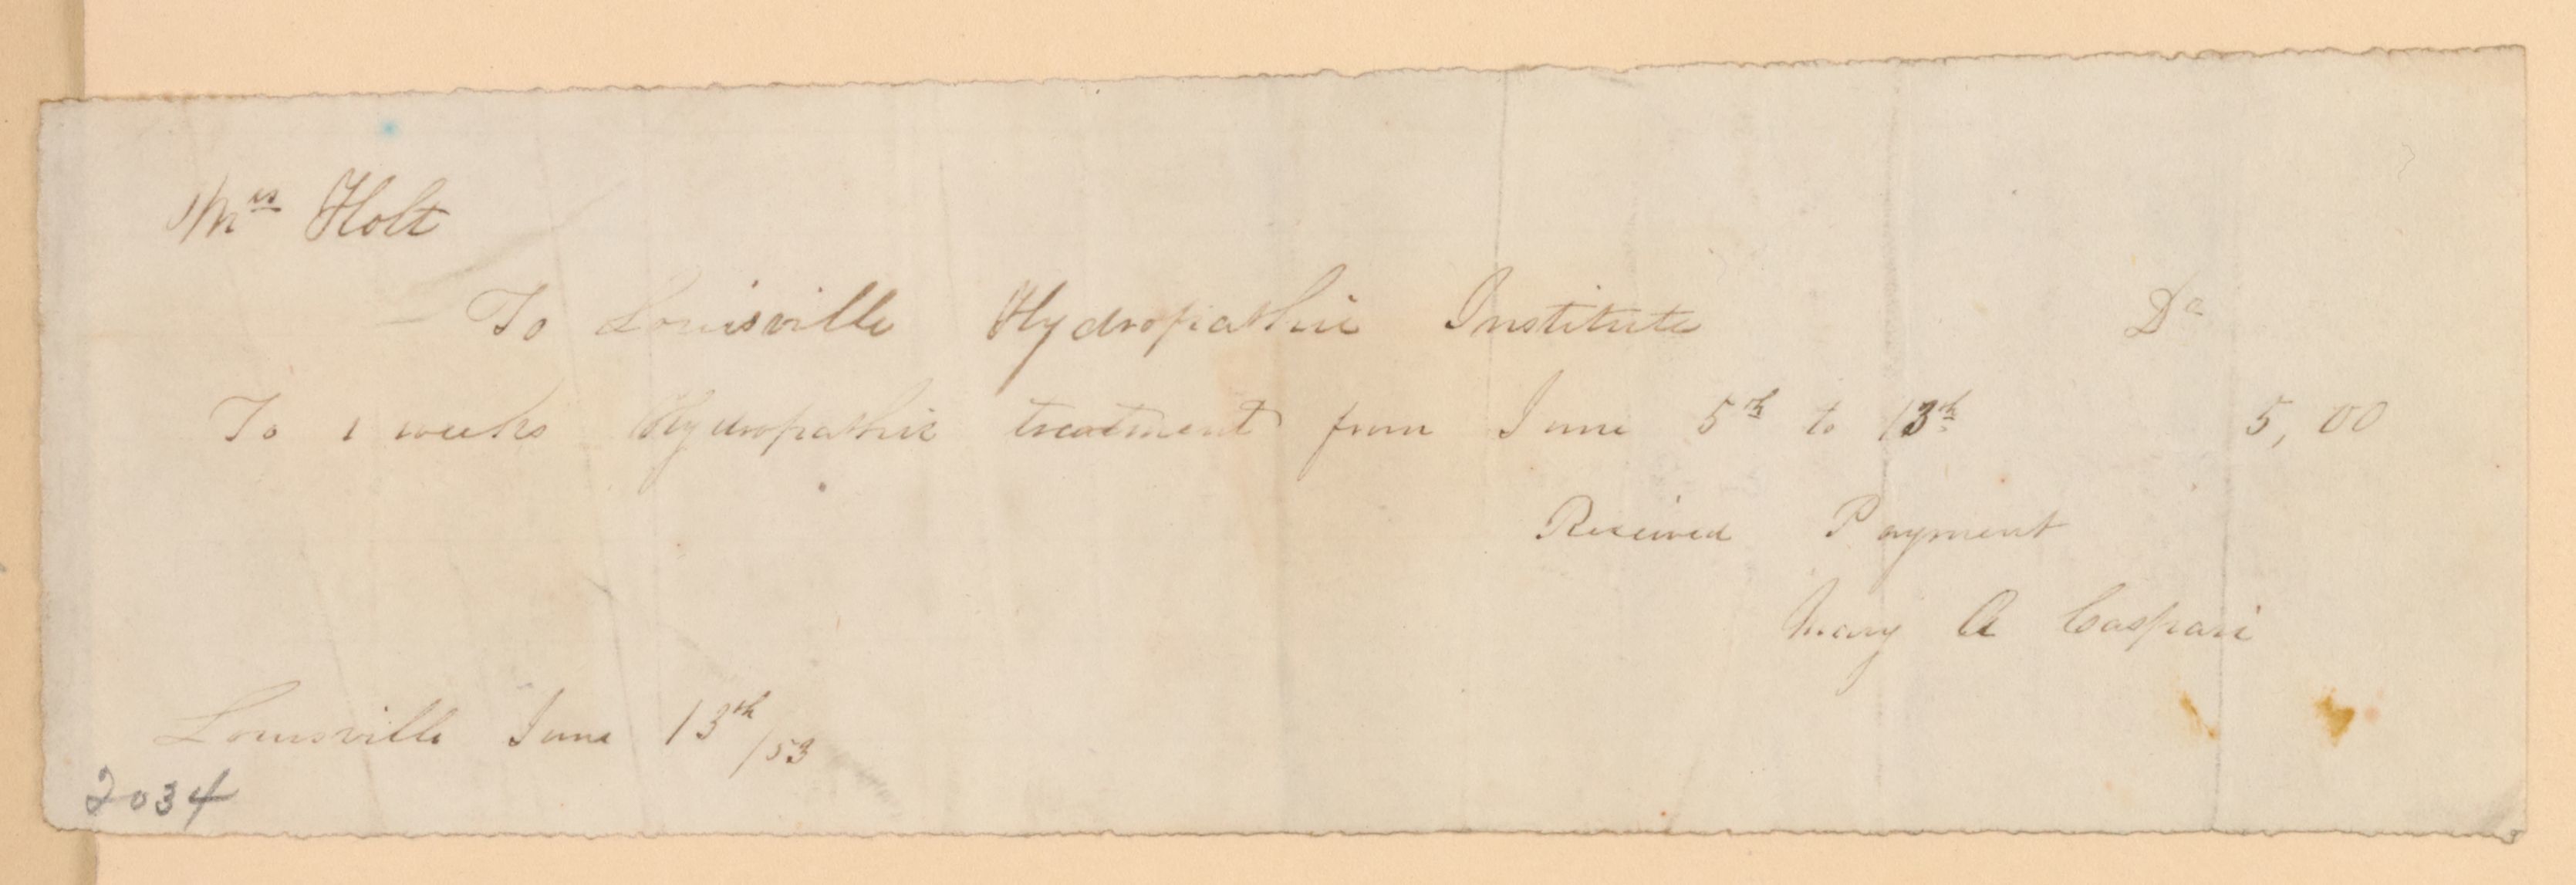 Mrs Holt
To Louisville Hydropathic Institute Dr
To 1 weeks Hydropathic treatment from June 5th to 13th 5,00
Received Payment
Mary A Caspari
Louisville June 13th/53
2034